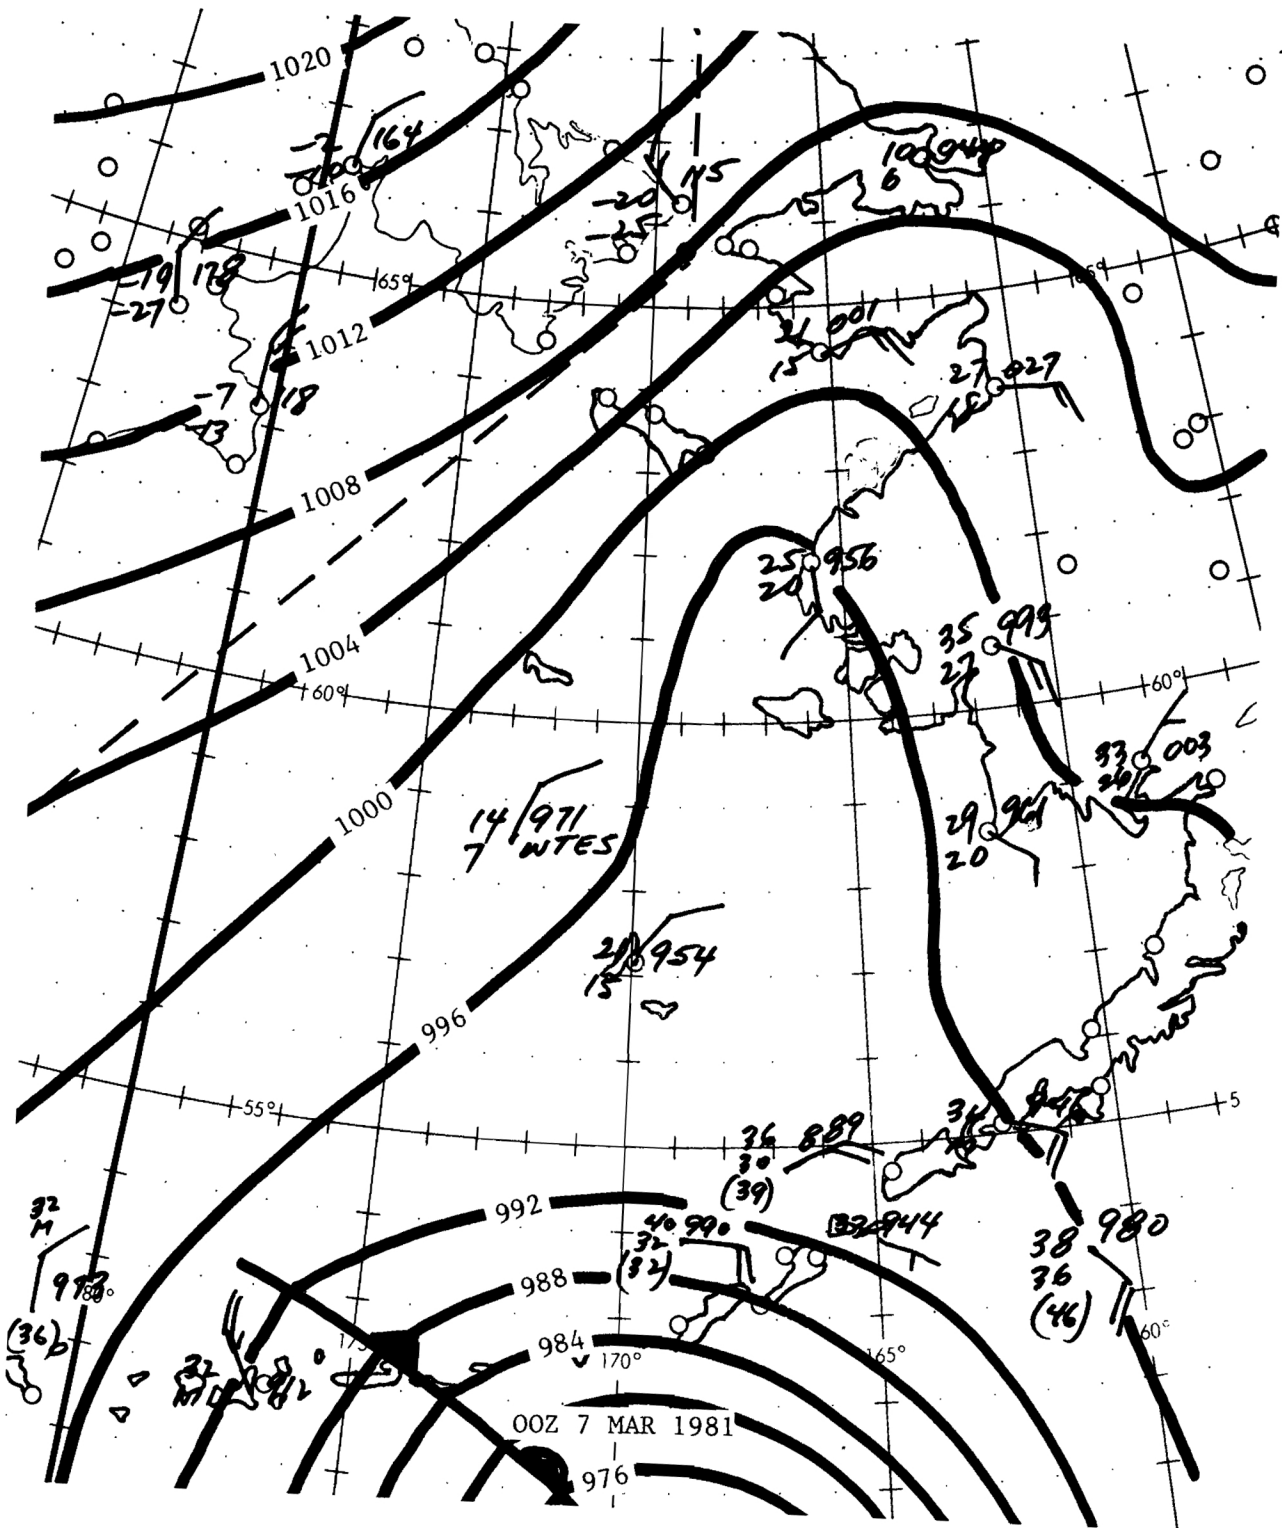 1020
-2 164
1016
-20 115
-25
10 944
6
-19 178
-27
65°
65°
1012
21 001
15
27 027
18
-7 118
-13
1008
25 956
20
1004
35 993
27
60°
60°
33 003
26
1000
14 971
7 WTES
29 961
20
21 954
15
996
55°
5
34
36 889
30
(39)
992
40 990
32
(32)
944
38 980
36
(46)
32
M
973
180°
(36)
988
984
60°
175
170°
165°
32
M 912
00Z 7 MAR 1981
976